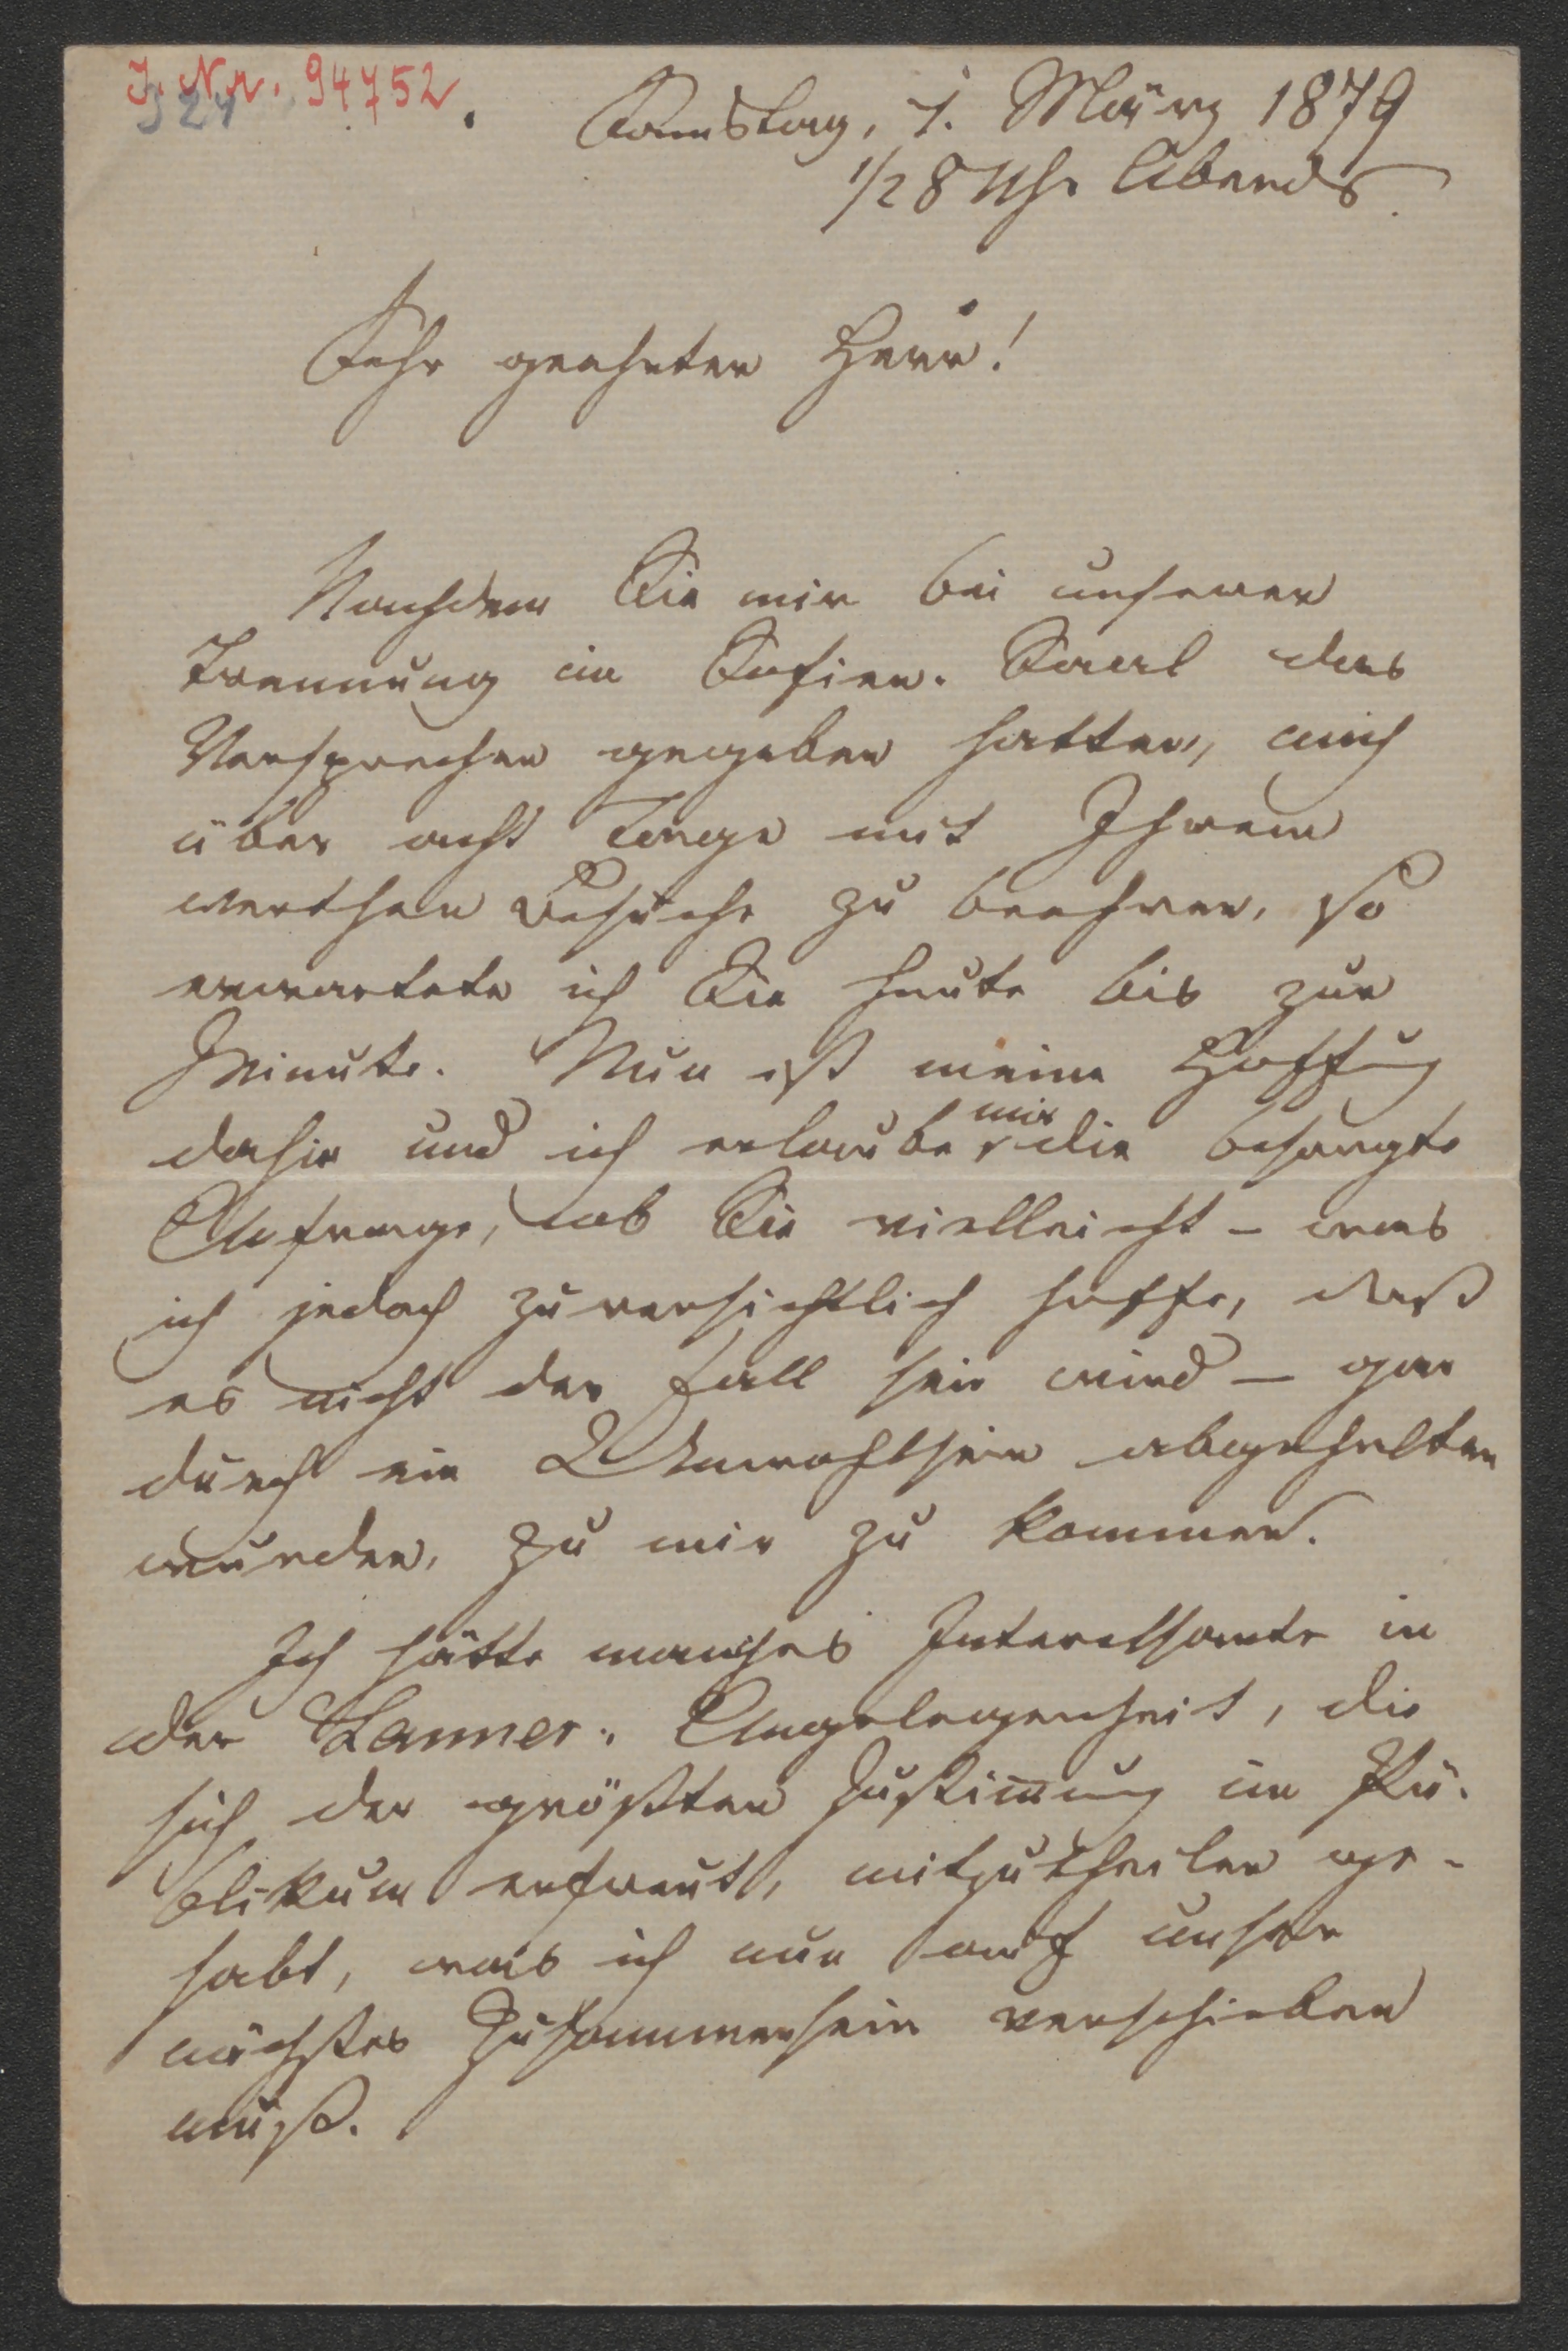 J. Nr. 94752
Samstag, 1. März 1879
1/2 8 Uhr Abends.
Sehr geehrter Herr!
Nachdem Sie mir bei unserer
Trennung im Sofien-Saal das
Versprechen gegeben hatten, mich
über acht Tage mit Ihrem
werthen Besuche zu beehren, so
erwartete ich Sie heute bis zur
Minute. Nun ist meine Hoffng
dahin und ich erlaube mir die besorgte
Anfrage, ob Sie vielleicht – was
ich jedoch zuversichtlich hoffe, daß
es nicht der Fall sein wird – gar
durch ein Unwohlsein abgehalten
wurden, zu mir zu kommen.
Ich hätte manches Interessante in
der Lanner-Angelegenheit, die
sich der größten Zustim̅ung im Pu-
blikum erfreut, mitzutheilen ge-
habt, was ich nun auf unser
nächstes Zusammensein verschieben
muß.